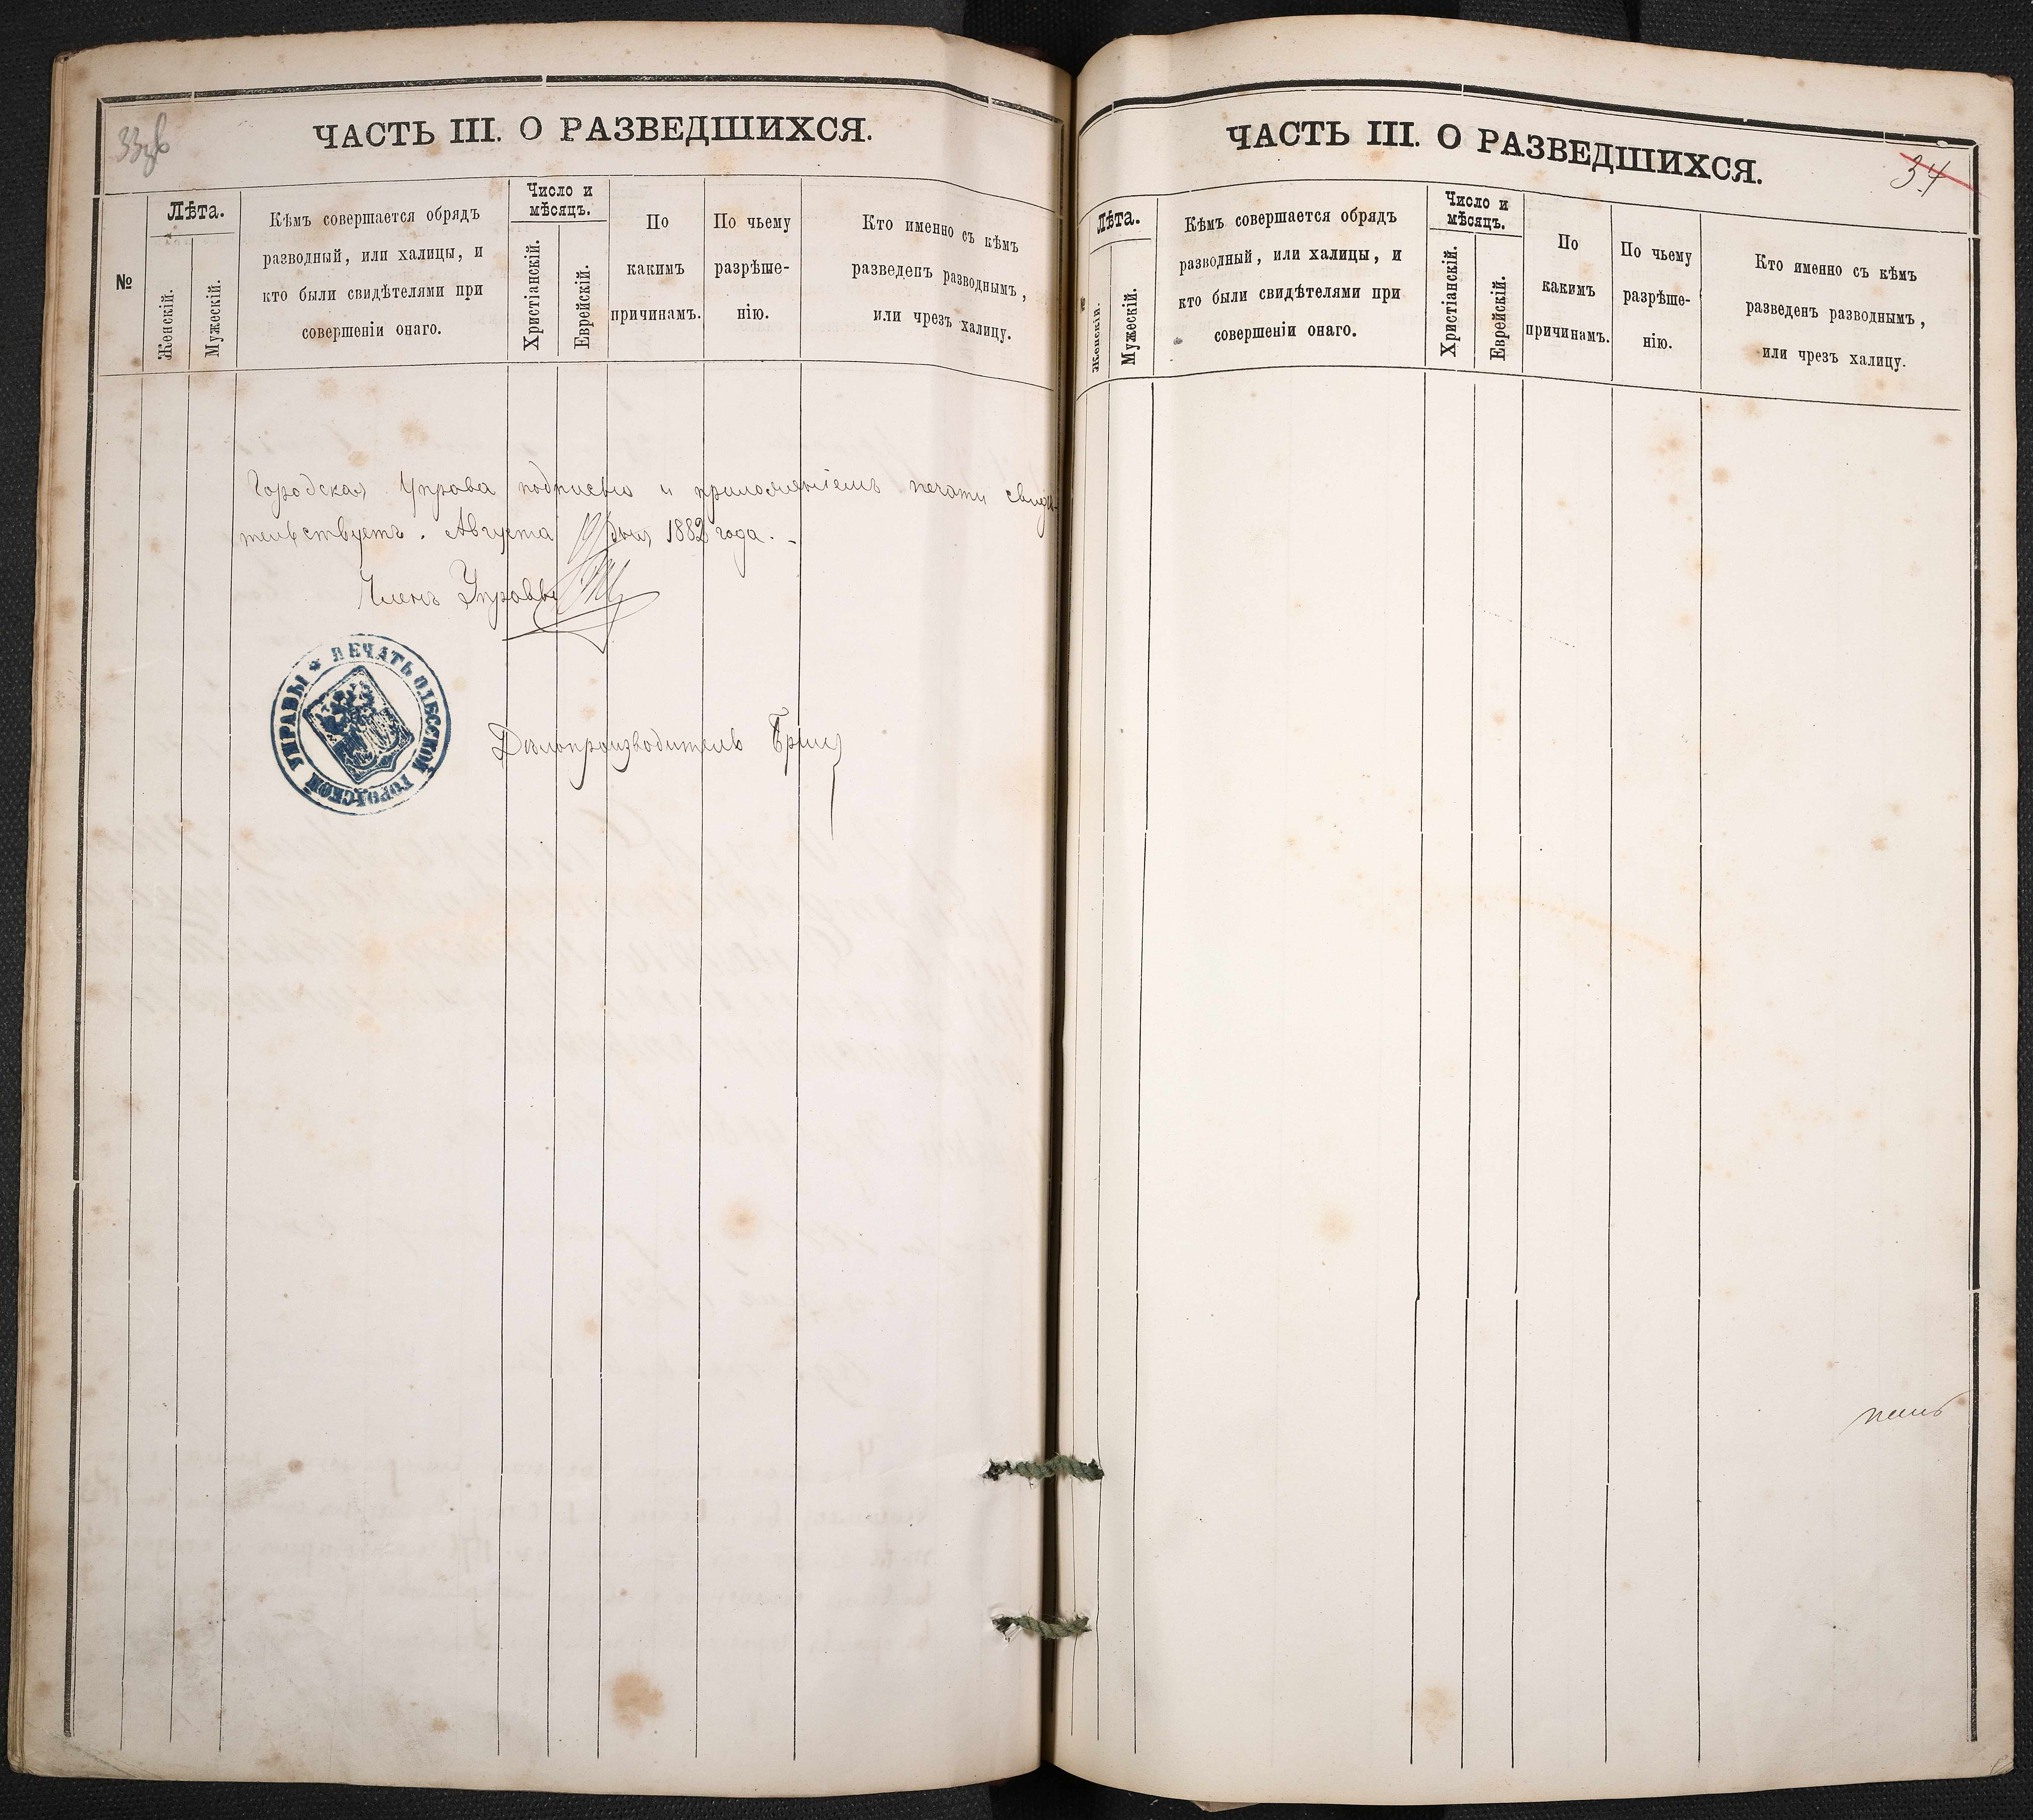 33об
ЧАСТЬ III. О РАЗВЕДШИХСЯ.
№
Лѣта.
Женскій.
Мужескій.
Кѣмъ совершается обрядъ
разводный, или халицы, и
кто были свидѣтелями при
совершеніи онаго.
Число и
мѣсяцъ.
Христіанскій.
Еврейскій.
По
какимъ
причинамъ.
По чьему
разрѣше-
нію.
Кто именно съ кѣмъ
разведенъ разводнымъ,
или чрезъ халицу.
Городская Управа подписью и приложеніемъ печати свидѣ-
тельствуетъ. Августа 19 дня 1882 года. -
Членъ Управы
ПЕЧАТЬ ОДЕССКОЙ ГОРОДСКОЙ УПРАВЫ
Дѣлопроизводитель
ЧАСТЬ III. О РАЗВЕДШИХСЯ.
34
№
Лѣта.
Женскій.
Мужескій.
Кѣмъ совершается обрядъ
разводный, или халицы, и
кто были свидѣтелями при
совершеніи онаго.
Число и
мѣсяцъ.
Христіанскій.
Еврейскій.
По
какимъ
причинамъ.
По чьему
разрѣше-
нію.
Кто именно съ кѣмъ
разведенъ разводнымъ,
или чрезъ халицу.